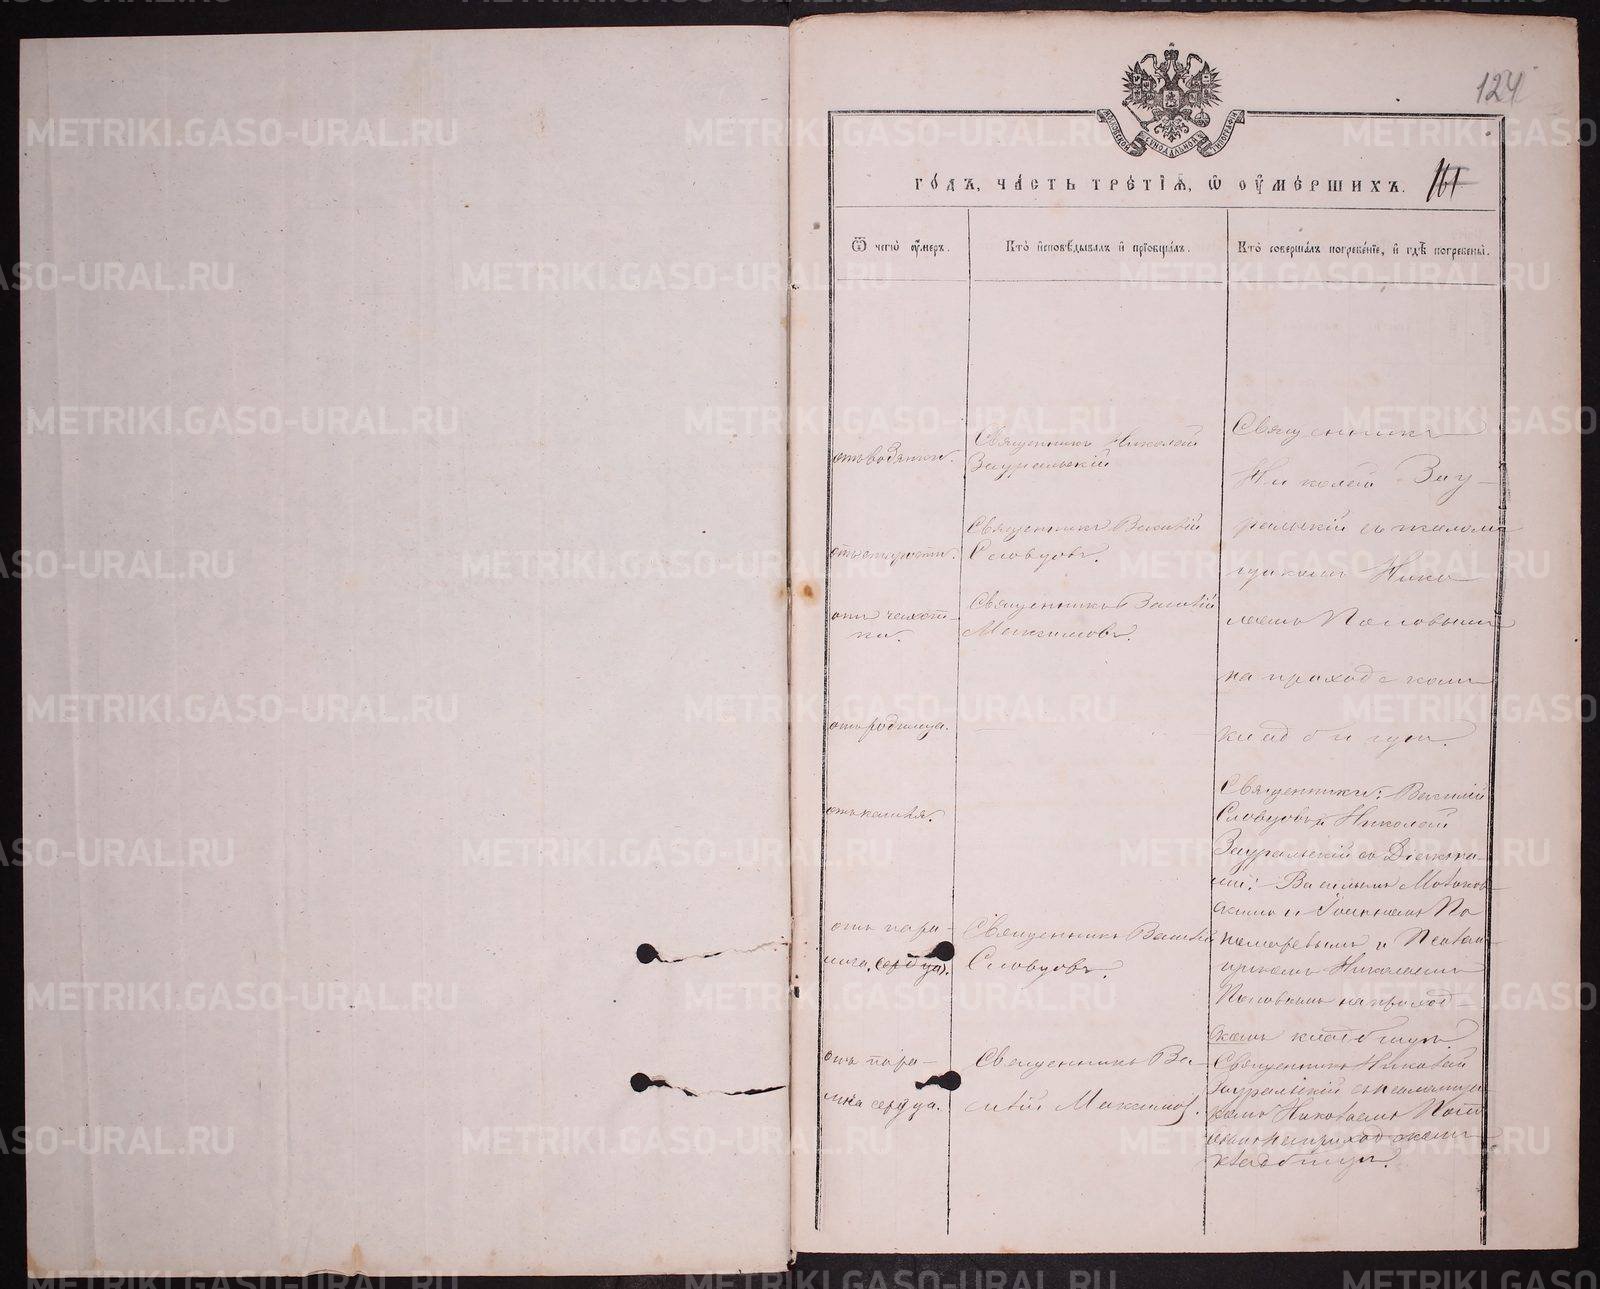 124
годъ, часть третія, ѡ оумершихъ.
161
Ѿ чегѡ оумеръ.
Кто исповѣдывалъ и пріобщалъ.
Кто совершалъ погребеніе, и гдѣ погребены.
отъ водянки.
Священникъ Николай
Зауральскій
Священникъ
Николай Зау-
ральскій съ псалом-
щикомъ Нико
лаемъ Поповымъ
на приходскомъ
кладбищѣ.
Священникъ Василій
Словцовъ.
Священникъ Василій
Максимовъ.
отъ родимца.
отъ кашля.
Священники: Василій
Словцовъ и Николай
Зауральскій съ Діакона-
ми: Василіемъ
и Іоанномъ По
номаревымъ и Псалом-
щикомъ Николаемъ
Поповымъ на приход-
скомъ кладбищѣ.
отъ пара-
лича. сердца.
Священникъ Василій
Словцовъ.
отъ пара-
лича сердца.
Священникъ Ва-
силій Максимов.
Священникъ Николай
Зауральскій съ псаломщи-
комъ Николаемъ Попо
вымъ на приходскомъ
кладбищѣ.
METRIKI.GASO-URAL.RU